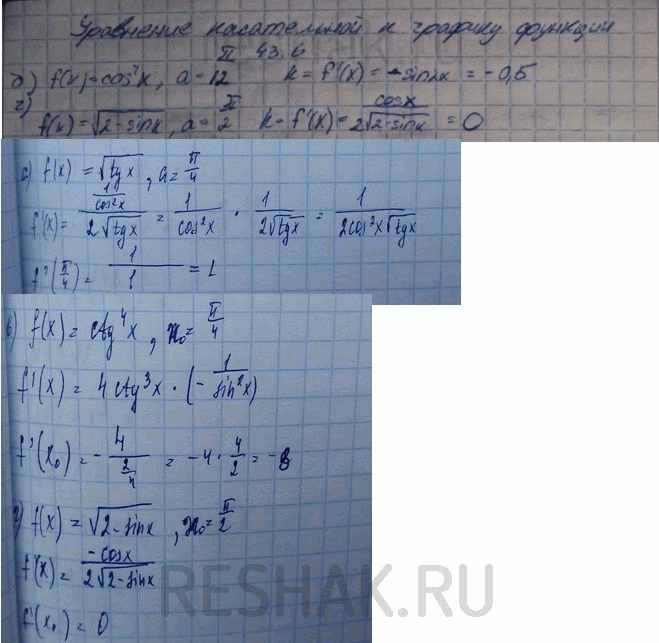 Уравнение касательной к графику функции
43.6
б) f(x)=cos²x, a=π/12 k=f'(x)=-sin2x=-0,5
г) f(x)=√(2-sinx), a=π/2 k=f'(x)=cosx/(2√(2-sinx))=0
а) f(x)=√(tgx), a=π/4
f'(x)=(1/cos²x)/(2√(tgx))=1/cos²x · 1/(2√(tgx))=1/(2cos²x√(tgx))
f'(π/4)=1/1=1
в) f(x)=ctg⁴x, x₀=π/4
f'(x)=4ctg³x·(-1/sin²x)
f'(x₀)=-4/(2/4)=-4·4/2=-8
г) f(x)=√(2-sinx), x₀=π/2
f'(x)=-cosx/(2√(2-sinx))
f'(x₀)=0
RESHAK.RU